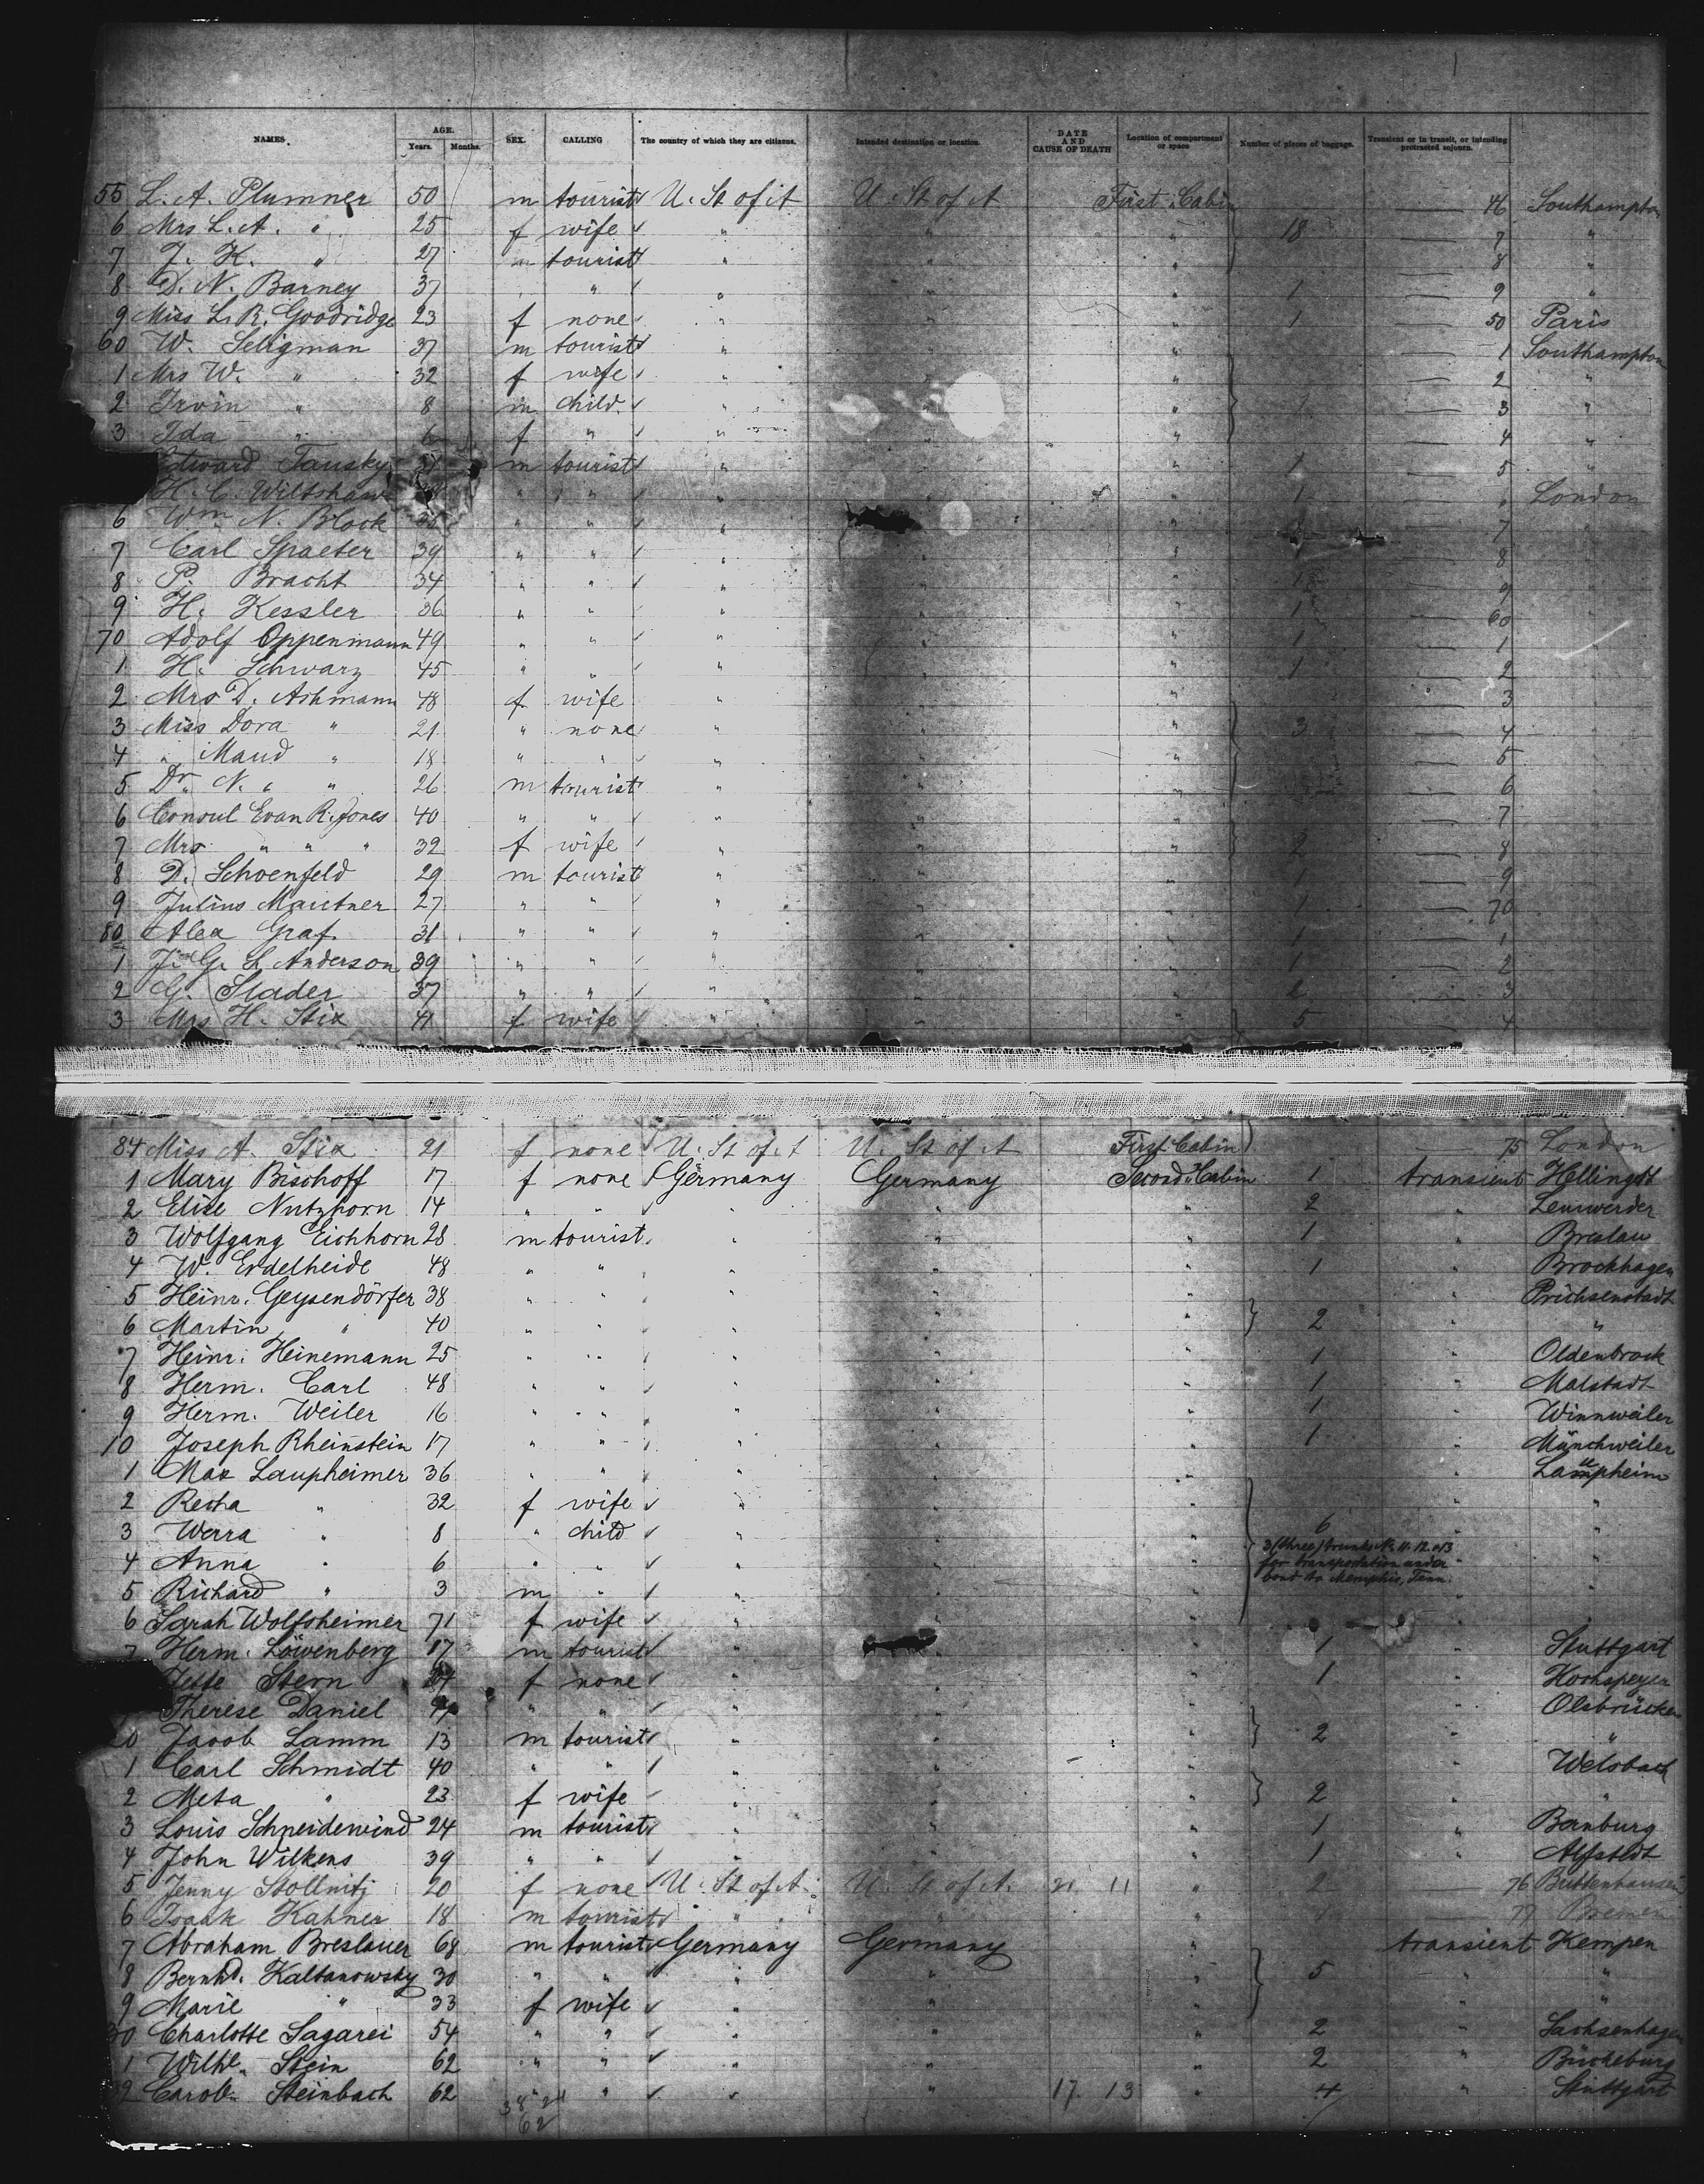 NAMES. AGE. Years. Months. SEX. CALLING The country of which they are citizens. Intended destination or location. DATE AND CAUSE OF DEATH Location of compartment or space Number of pieces of baggage. Transient or in transit, or intending protracted sojourn.
55 L. A. Plumner 50 m tourist U. St of A U. St of A First Cabin — 46 Southampton
6 Mrs L. A. " 25 f wife " " " 18 — 7 "
7 J. K. " 27 m tourist " " " — 8 "
8 D. N. Barney 37 " " " " 1 — 9 "
9 Miss L. R. Goodridge 23 f none " " " 1 — 50 Paris
60 W. Seligman 37 m tourist " " " — 1 Southampton
1 Mrs W. " 32 f wife " " " — 2 "
2 Irvin " 8 m child " " " — 3 "
3 Ida " 6 f " " " " — 4 "
Edward Tausky m tourist " " " 1 — 5 "
H. C. Wiltshaw " " " " " 1 — London
6 Wm N. Block 35 " " " " " — 7
7 Carl Spaeter 39 " " " " " — 8
8 P. Bracht 34 " " " " " 1 — 9
9 H. Kessler 36 " " " " " 1 — 60
70 Adolf Oppenmann 49 " " " " " 1 — 1
1 H. Schwarz 45 " " " " " 1 — 2
2 Mrs D. Ashmann 48 f wife " " " — 3
3 Miss Dora " 21 " none " " " 3 — 4
4 " Maud " 18 " " " " " — 5
5 Dr. N. " " 26 m tourist " " " — 6
6 Consul Evan R. Jones 40 " " " " " — 7
7 Mrs " " " 32 f wife " " " 2 — 8
8 D. Schoenfeld 29 m tourist " " " 1 — 9
9 Julius Mautner 27 " " " " " 1 — 70
80 Alex Graf 31 " " " " " 1 — 1
1 J. G. L. Anderson 39 " " " " " 1 — 2
2 G. Slader 37 " " " " " 2 — 3
3 Mrs H. Stix 41 f wife " " " 5 — 4
84 Miss A. Stix 21 f none U. St of A U. St of A First Cabin — 75 London
1 Mary Bischoff 17 f none Germany Germany Second Cabin 1 transient Hellingst
2 Elise Nutzhorn 14 " " " " " 2 " Lemwerder
3 Wolfgang Eichhorn 28 m tourist " " " 1 " Breslau
4 W. Erdelheide 48 " " " " " 1 " Brockhagen
5 Heinr. Geysendörfer 38 " " " " " " Prichsenstadt
6 Martin " 40 " " " " " 2 "
7 Heinr. Heinemann 25 " " " " " 1 Oldenbrook
8 Herm. Carl 48 " " " " " 1 " Malstadt
9 Herm. Weiler 16 " " " " " 1 Winnweiler
10 Joseph Rheinstein 17 " " " " " 1 " Münchweiler
1 Max Laupheimer 36 " " " " " " Laupheim
2 Recha " 32 f wife " " " " "
3 Werra " 8 " child " " " 6 " "
4 Anna " 6 " " " " " 3 (three) trunks No 11. 12. a 13 for transportation under bond to Memphis, Tenn. " "
5 Richard " 3 m " " " " " "
6 Sarah Wolfsheimer 71 f wife " " " "
7 Herm. Löwenberg 17 m tourist " " " 1 " Stuttgart
Jette Stern 24 f none " " " 1 " Hochspeyer
Therese Daniel " " " " " " Olsbrücken
20 Jacob Lamm 13 m tourist " " " 2 " "
1 Carl Schmidt 40 " " " " " " Welsbach
2 Meta " 23 f wife " " " 2 " "
3 Louis Schneidewind 24 m tourist " " " 1 " Bernburg
4 John Wilkens 39 " " " " " 1 " Alfstedt
5 Jenny Stollnitz 20 f none U. St of A. U. St of A. 21 11 " 2 — 76 Buttenhausen
6 Isaak Kahner 18 m tourist " " " 1 — 77 Bremen
7 Abraham Breslauer 68 m tourist Germany Germany " transient Kempen
8 Bernhd. Kaltanowsky 30 " " " " " 5 " "
9 Marie " 33 f wife " " " " "
30 Charlotte Sagarei 54 " " " " " 2 " Sachsenhagen
1 Wilhe. Stein 62 " " " " " 2 " Bückeburg
32 Carol. Steinbach 62 " " " " 17. 13 " 4 " Stuttgart
38 24
62